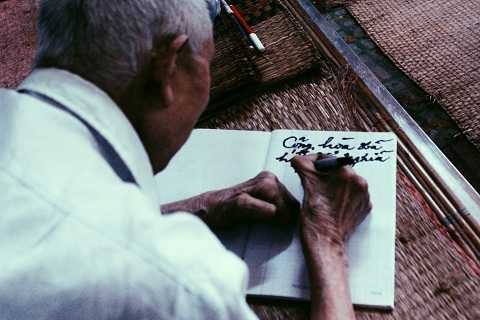 Cộng hòa xã
hội nghĩa